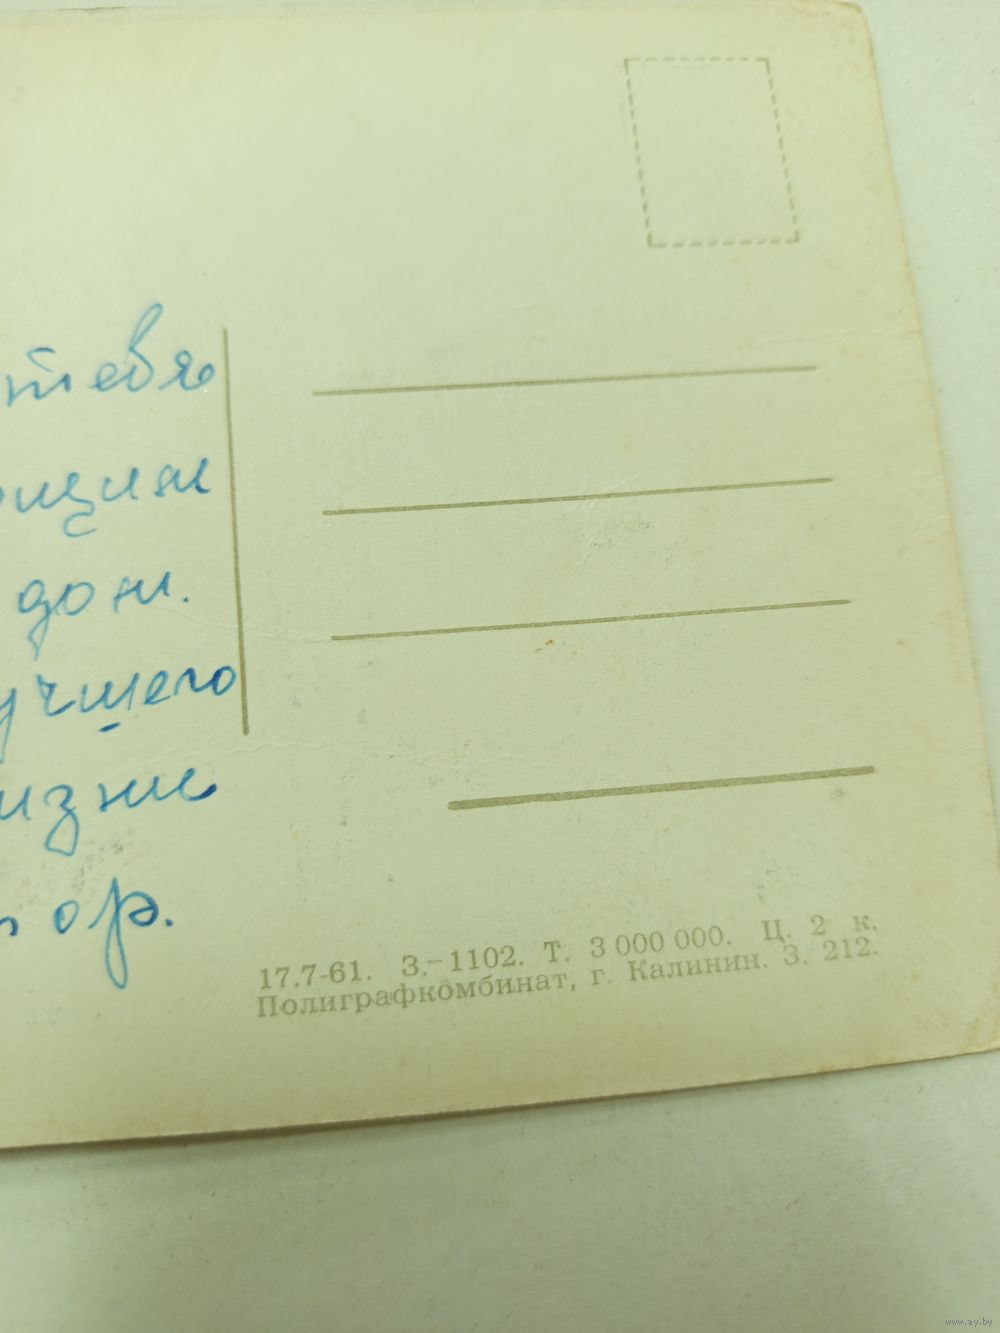 тебя
дом.
учшего
изни
ор.
17.7-61. З.-1102. Т. 3 000 000. Ц. 2 к.
Полиграфкомбинат, г. Калинин. З. 212.
www.ay.by